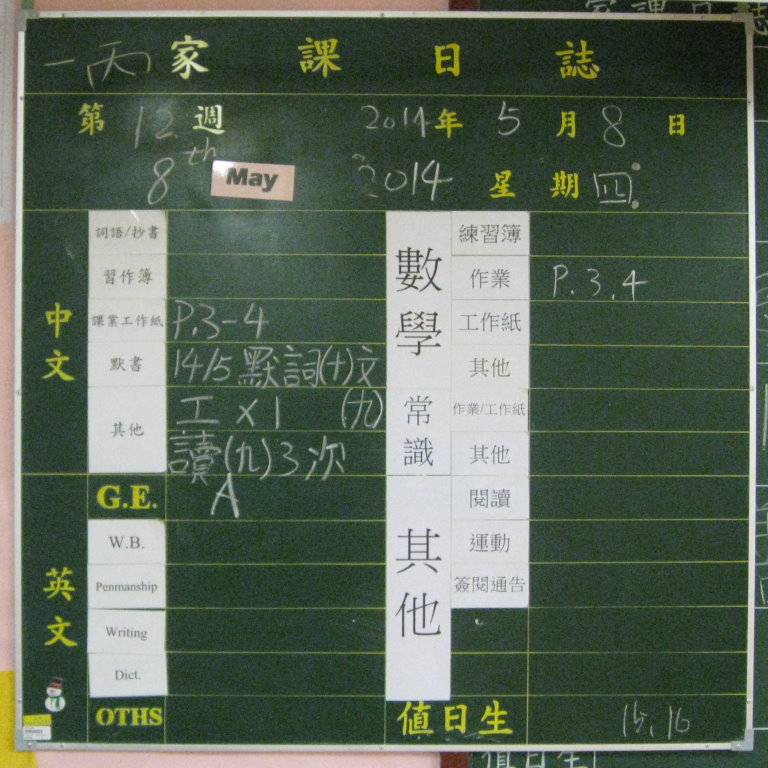 一丙 家課日誌
第12週 2014年5月8日
8th May 2014 星期四
中文
詞語/抄書
習作簿
課業工作紙 P.3-4
默書 14/5 默詞(十)文
其他 工x1 (九)
讀(九)3次
英文
G.E. A
W.B.
Penmanship
Writing
Dict.
OTHS
數學
練習簿
作業 P.3,4
工作紙
其他
常識
作業/工作紙
其他
其他
閱讀
運動
簽閱通告
值日生 15,16
家課日誌
值日生